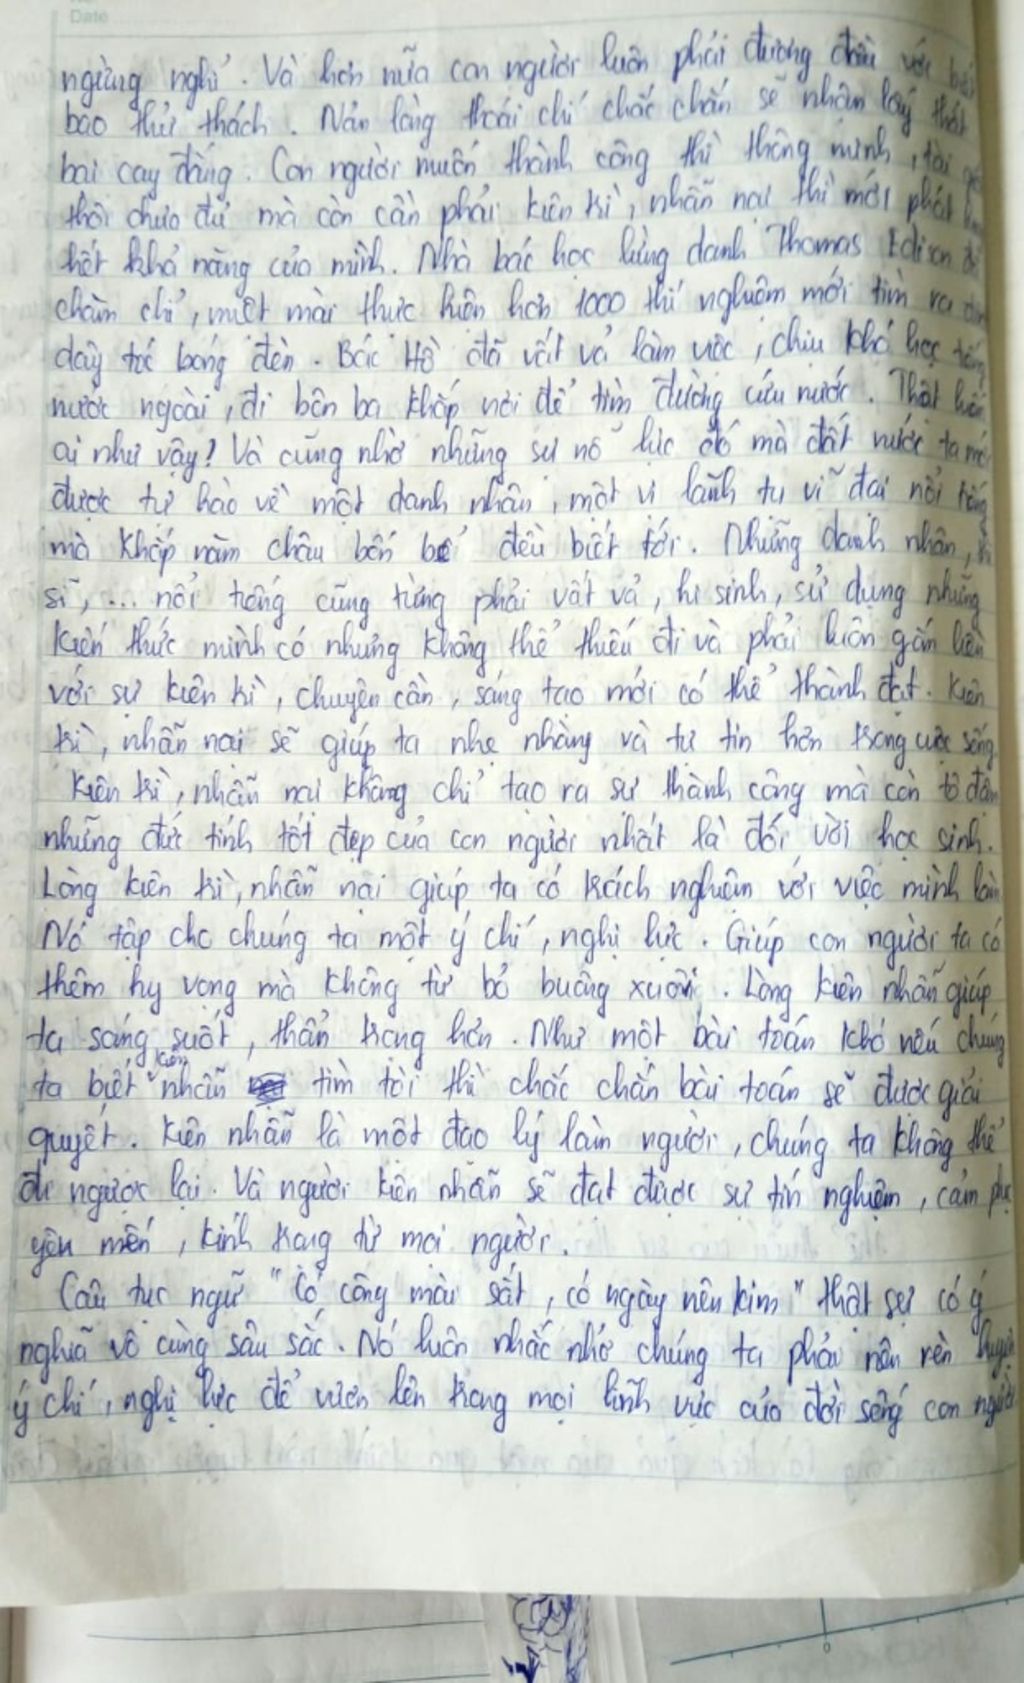 Date
ngừng nghỉ. Và hơn nữa con người luôn phải đương đầu với
bao thử thách. Nản lòng thoái chí chắc chắn sẽ nhận lấy thất
bại cay đắng. Con người muốn thành công thì thông minh, tài
thôi chưa đủ mà còn cần phải kiên trì, nhẫn nại thì mới phát
hết khả năng của mình. Nhà bác học lừng danh Thomas Edison
chăm chỉ, miệt mài thực hiện hơn 1000 thí nghiệm mới tìm ra
dây tóc bóng đèn. Bác Hồ đã vất vả làm việc, chịu khó học tiếng
nước ngoài, đi bôn ba khắp nơi để tìm đường cứu nước. Thật
ai như vậy? Và cũng nhờ những sự nỗ lực đó mà đất nước ta mới
được tự hào về một danh nhân, một vị lãnh tụ vĩ đại nổi tiếng
mà khắp năm châu bốn bể đều biết tới. Những danh nhân,
sĩ, ... nổi tiếng cũng từng phải vất vả, hi sinh, sử dụng những
kiến thức mình có nhưng không thể thiếu đi và phải luôn gắn liền
với sự kiên trì, chuyên cần, sáng tạo mới có thể thành đạt. Kiên
trì, nhẫn nại sẽ giúp ta nhẹ nhàng và tự tin hơn trong cuộc sống.
Kiên trì, nhẫn nại không chỉ tạo ra sự thành công mà còn tô đậm
những đức tính tốt đẹp của con người nhất là đối với học sinh.
Lòng kiên trì, nhẫn nại giúp ta có trách nghiệm với việc mình làm
Nó tập cho chúng ta một ý chí, nghị lực. Giúp con người ta có
thêm hy vọng mà không từ bỏ buông xuôi. Lòng kiên nhẫn giúp
ta sáng suốt, thần trọng hơn. Như một bài toán khó nếu chúng
ta biết kiên nhẫn tìm tòi thì chắc chắn bài toán sẽ được giải
quyết. Kiên nhẫn là một đạo lý làm người, chúng ta không thể
đi ngược lại. Và người kiên nhẫn sẽ đạt được sự tín nghiệm, cảm phục
yêu mến, kính trọng từ mọi người.
Câu tục ngữ "Có công mài sắt, có ngày nên kim" thật sự có ý
nghĩa vô cùng sâu sắc. Nó luôn nhắc nhở chúng ta phải nên rèn luyện
ý chí, nghị lực để vươn lên trong mọi lĩnh vực của đời sống con người